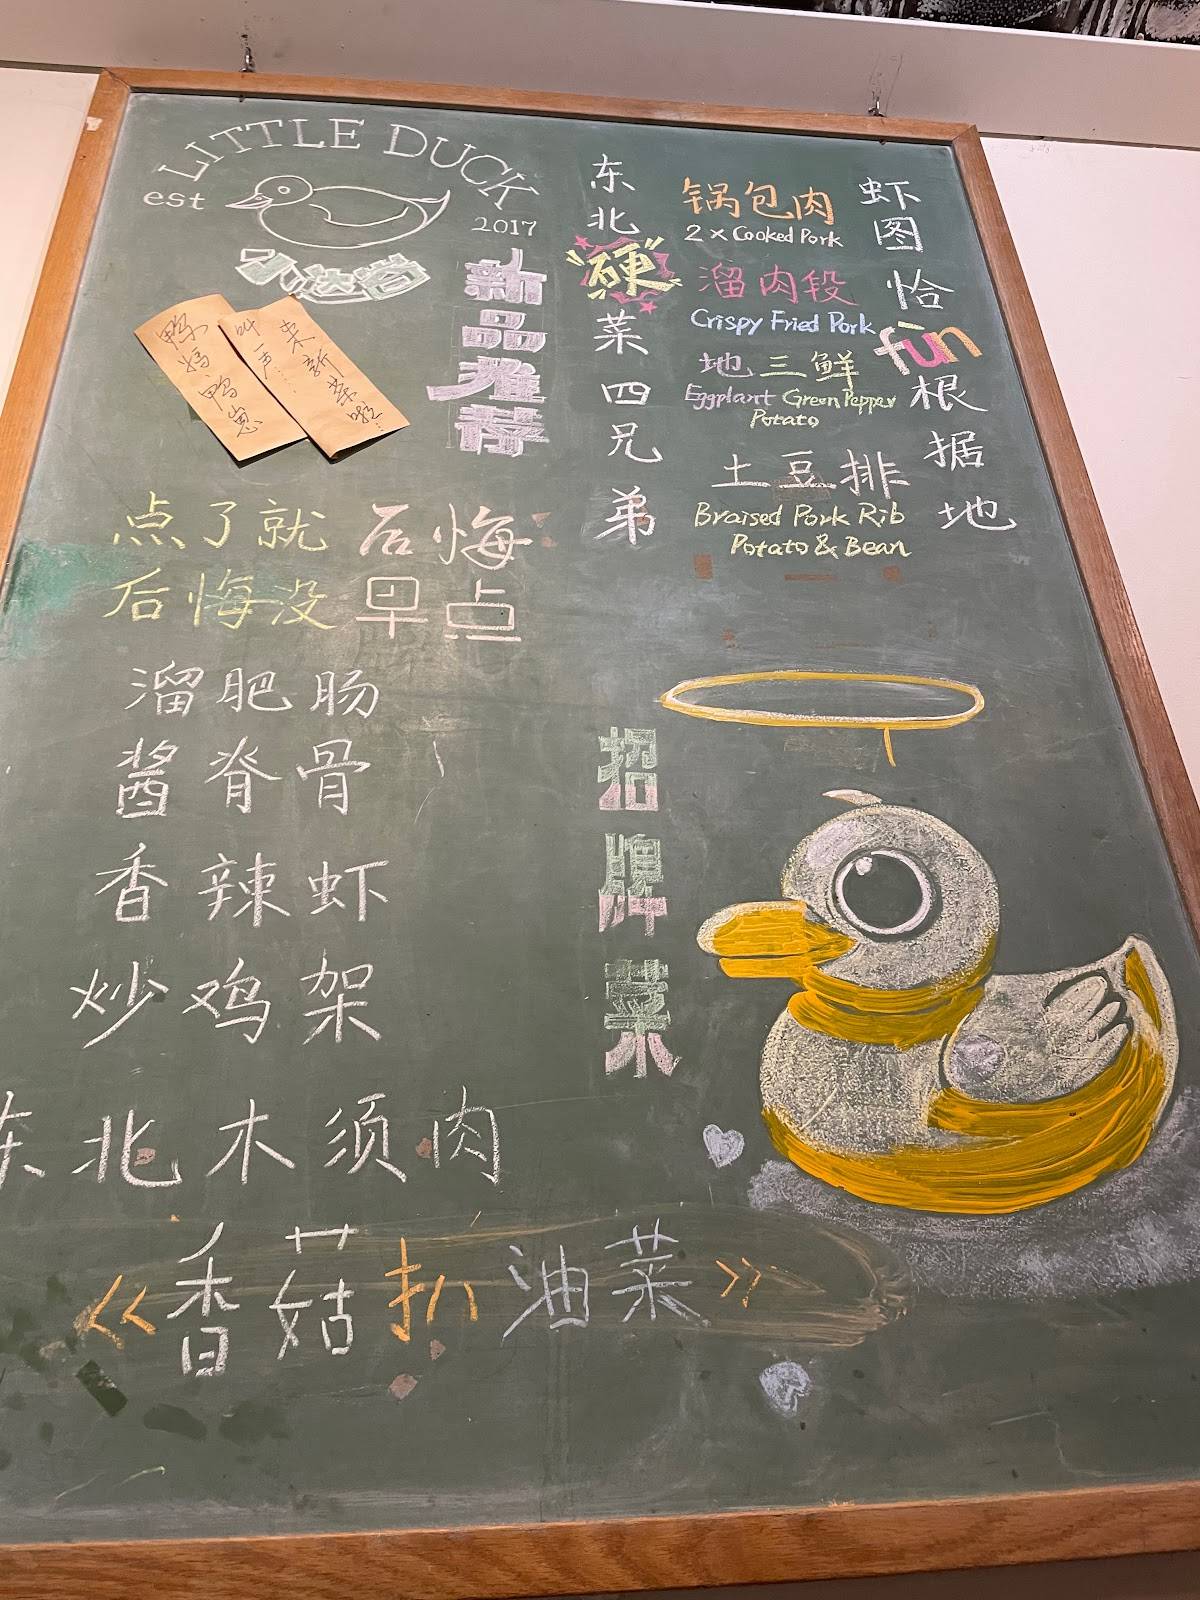 LITTLE DUCK
est
2017
新品推荐
鸭妈鸭崽
叫一声……
来新菜啦…
点了就后悔
后悔没早点
溜肥肠
酱脊骨
香辣虾
炒鸡架
东北木须肉
《香菇扒油菜》
东北"硬"菜四兄弟
锅包肉
2 x Cooked Pork
溜肉段
Crispy Fried Pork
地三鲜
Eggplant Green Pepper
Potato
土豆排
Braised Pork Rib
Potato & Bean
虾图恰fùn根据地
招牌菜